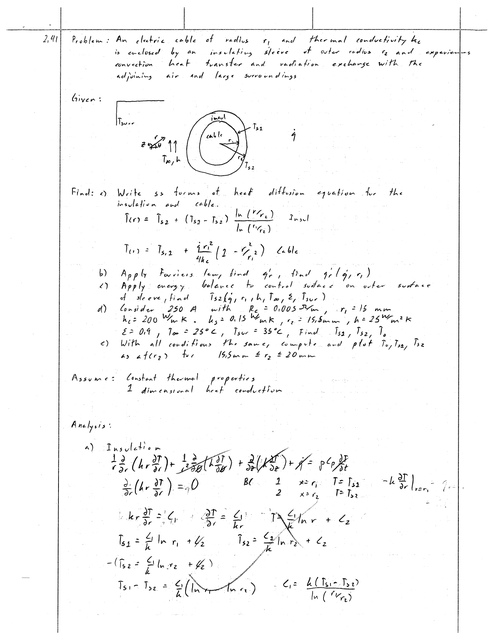 2.41 Problem: An electric cable of radius r₁ and thermal conductivity kc
is enclosed by an insulating sleeve of outer radius r₂ and experiences
convection heat transfer and radiation exchange with the
adjoining air and large surroundings
Given:
Tsurr
insul
cable
Ts2
r₁
T∞, h
r₂
Ts2
q̇
Find: a) Write ss forms of heat diffusion equation for the
insulation and cable.
T(r) = Ts2 + (Ts1 - Ts2) ln(r/r₂) / ln(r₁/r₂) Insul
T(r) = Ts,1 + q̇r₁²/4kc (1 - r²/r₁²) Cable
b) Apply Fouriers law, find q'r, find q'r(q̇, r₁)
c) Apply energy balance to control surface on outer surface
of sleeve, find Ts2(q̇, r₁, h, T∞, ε, Tsur)
d) Consider 250 A with R'e = 0.005 Ω/m, r₁ = 15 mm
kc = 200 W/mK, ks = 0.15 W/mK, r₂ = 15.5mm, h = 25 W/m²K
ε = 0.9, T∞ = 25°C, Tsur = 35°C, Find Ts1, Ts2, T₀
e) With all conditions the same, compute and plot T₀, Ts1, Ts2
as a f(r₂) for 15.5mm ≤ r₂ ≤ 20mm
Assume: Constant thermal properties
1 dimensional heat conduction
Analysis:
a) Insulation
1/r ∂/∂r (kr ∂T/∂r) + 1/r² ∂/∂φ (k ∂T/∂φ) + ∂/∂z (k ∂T/∂z) + q̇ = ρcp ∂T/∂t
∂/∂r (kr ∂T/∂r) = 0 BC 1 x=r₁ T=Ts1 -k ∂T/∂r |r=r₁
2 x=r₂ T=Ts2
kr ∂T/∂r = C₁ ∂T/∂r = C₁/kr T = C₁/k ln r + C₂
Ts1 = C₁/k ln r₁ + C₂ Ts2 = C₁/k ln r₂ + C₂
-(Ts2 = C₁/k ln r₂ + C₂)
Ts1 - Ts2 = C₁/k (ln r₁ - ln r₂) C₁ = k(Ts1 - Ts2) / ln(r₁/r₂)